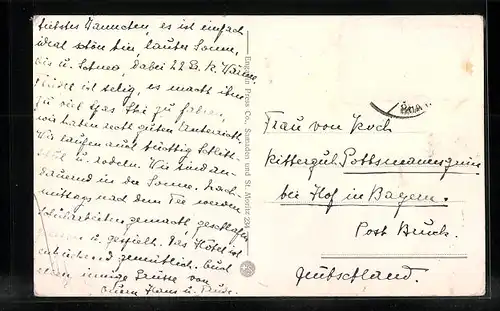 liebstes Hannchen, es ist einfach
ideal schön hier, lauter Sonne,
Eis u. Schnee, dabei 22 Gr. R. Wärme.
ist selig, es macht ihm
zu viel Spas Ski zu fahren,
wir haben recht guten Unterricht.
Wir laufen auch tüchtig Schlitt-
schuh u. rodeln. Wir sind an-
dauernd in der Sonne. Nach-
mittags nach dem Tee werden
gemacht, geschlafen
u. gespielt. Das Hôtel ist
entzückend gemütlich. Euch
innige Grüsse von
Euern Hans u.
Engadin Press Co., Samaden und St. Moritz
Frau von Koch
Rittergut Gottsmannsgrün
bei Hof in Bayern.
Post Bruck.
Deutschland.